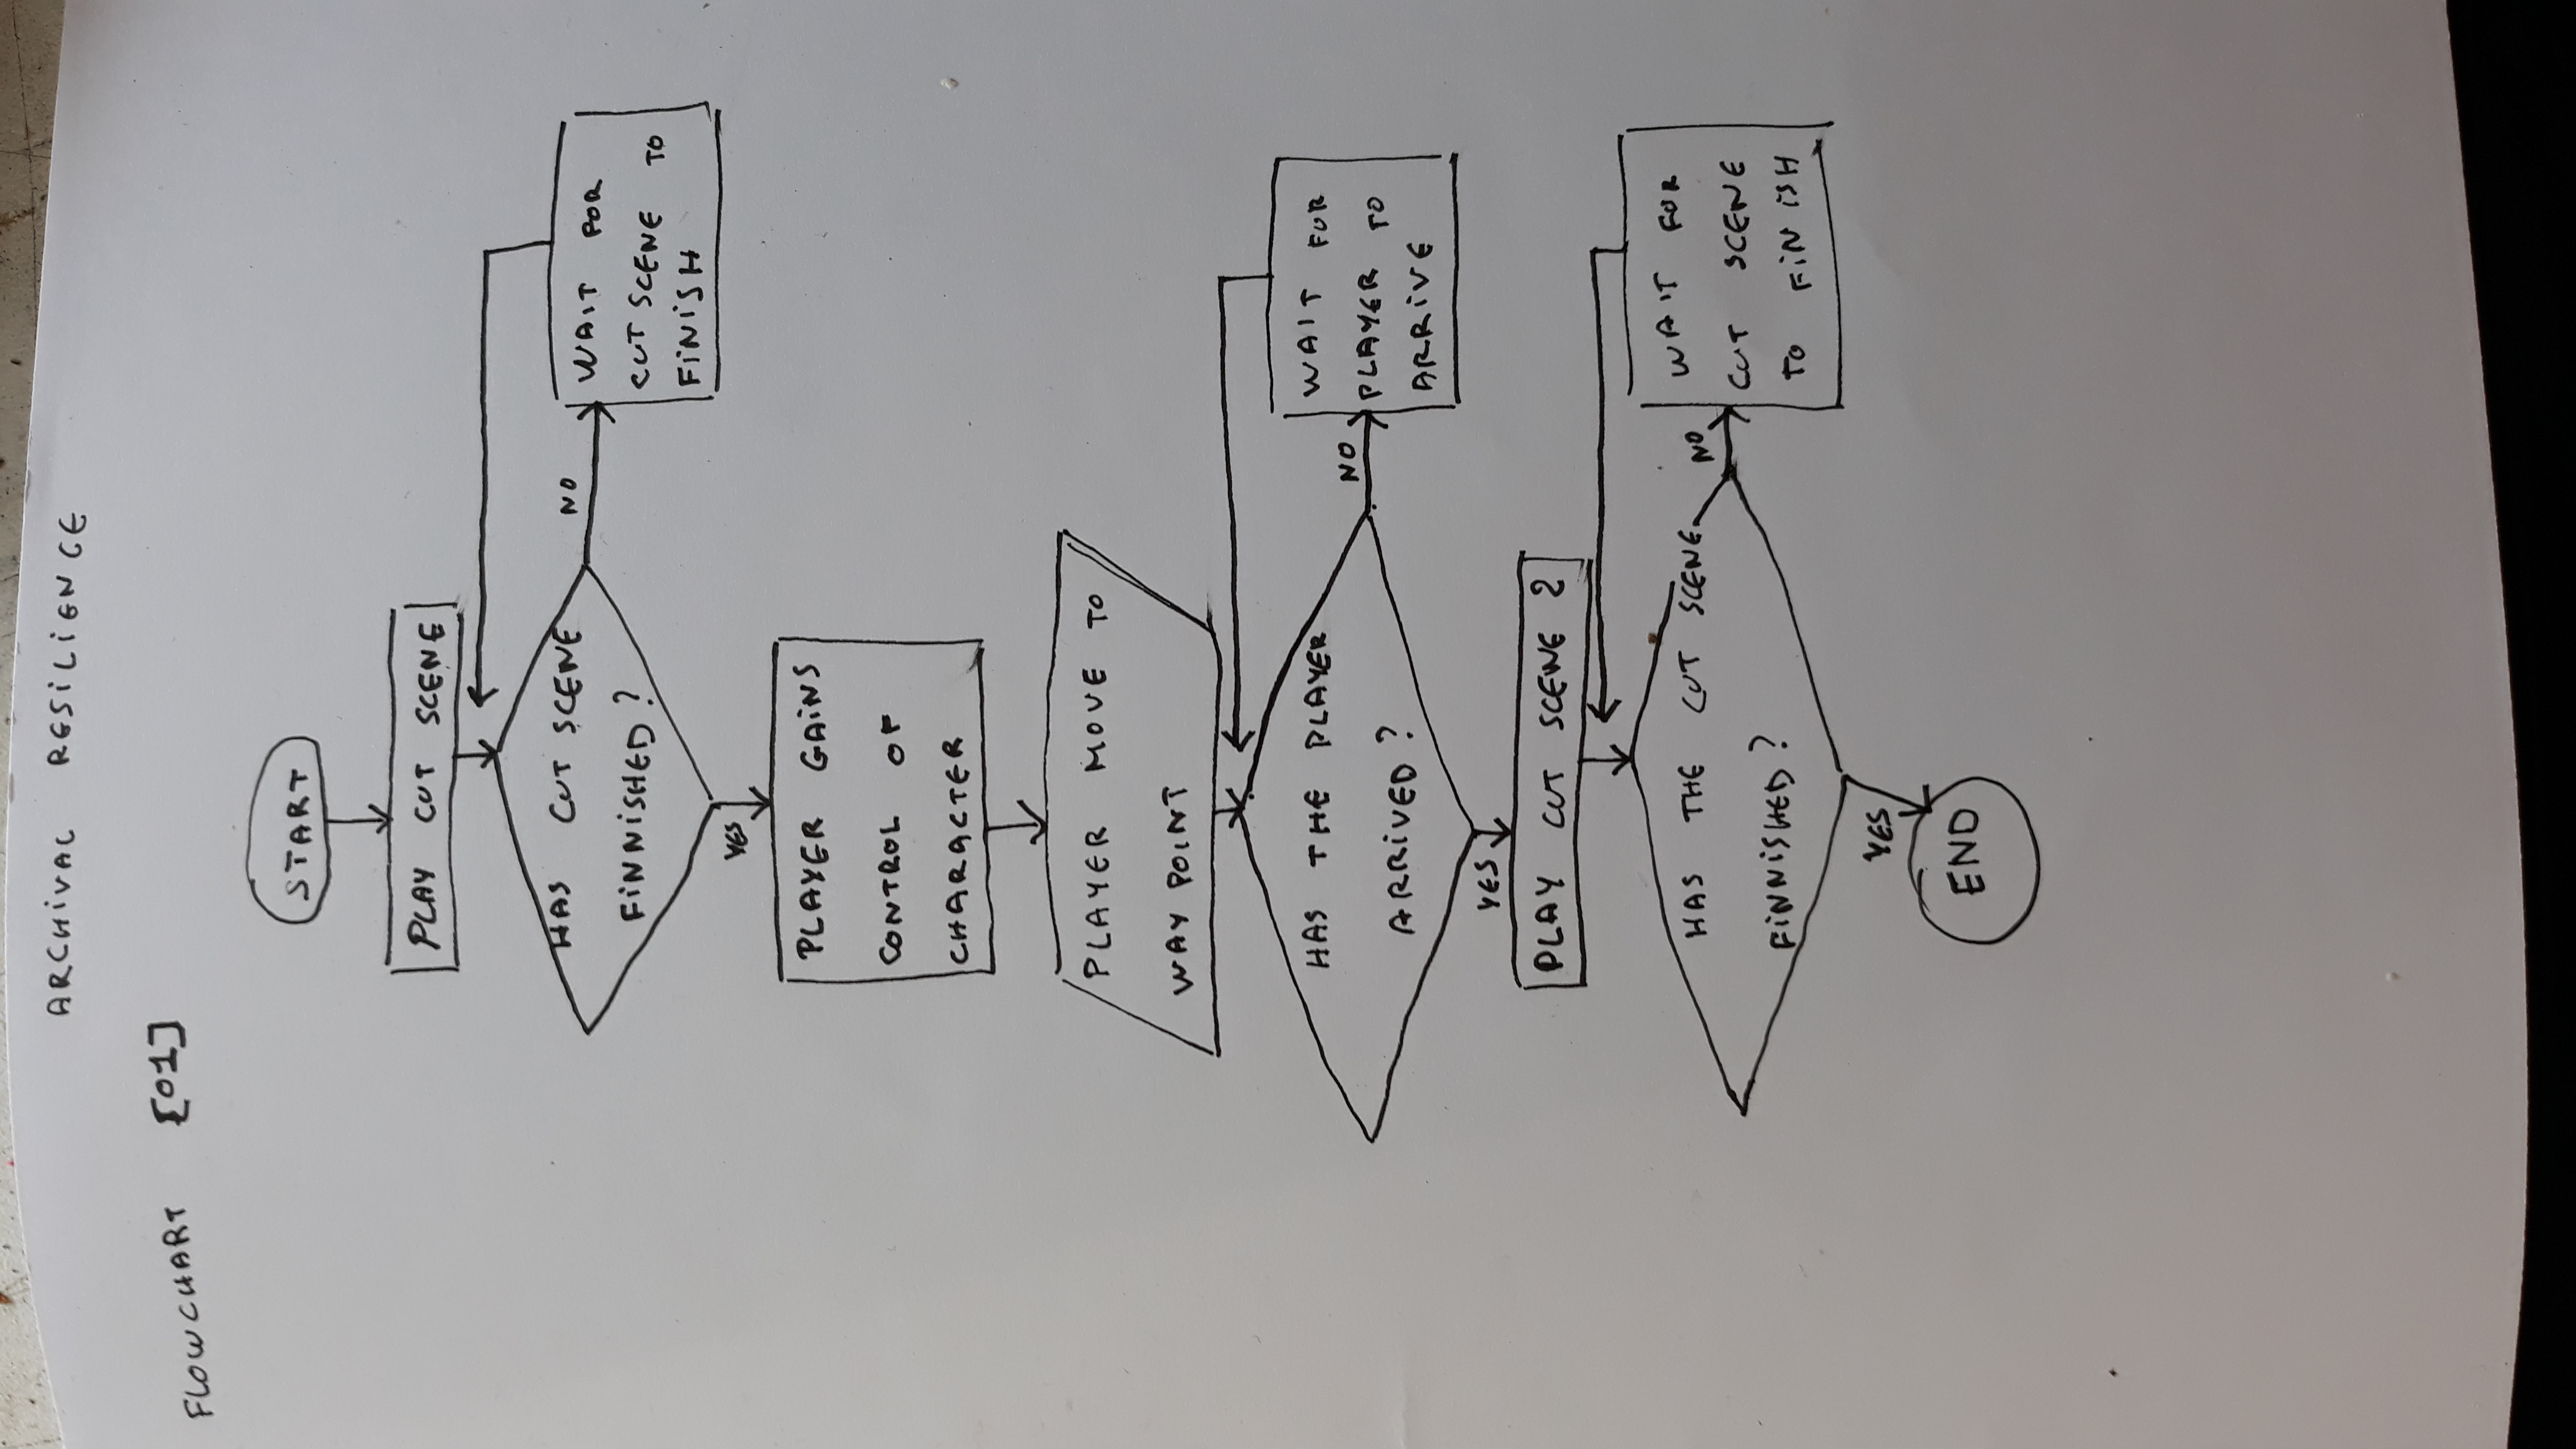 ARCHIVAL RESILIENCE
FLOWCHART [01]
START
PLAY CUT SCENE
HAS CUT SCENE
FINNISHED?
NO
WAIT FOR
CUT SCENE TO
FINISH
YES
PLAYER GAINS
CONTROL OF
CHARACTER
PLAYER MOVE TO
WAY POINT
HAS THE PLAYER
ARRIVED?
NO
WAIT FOR
PLAYER TO
ARRIVE
YES
PLAY CUT SCENE 2
HAS THE CUT SCENE
FINNISHED?
NO
WAIT FOR
CUT SCENE
TO FINISH
YES
END